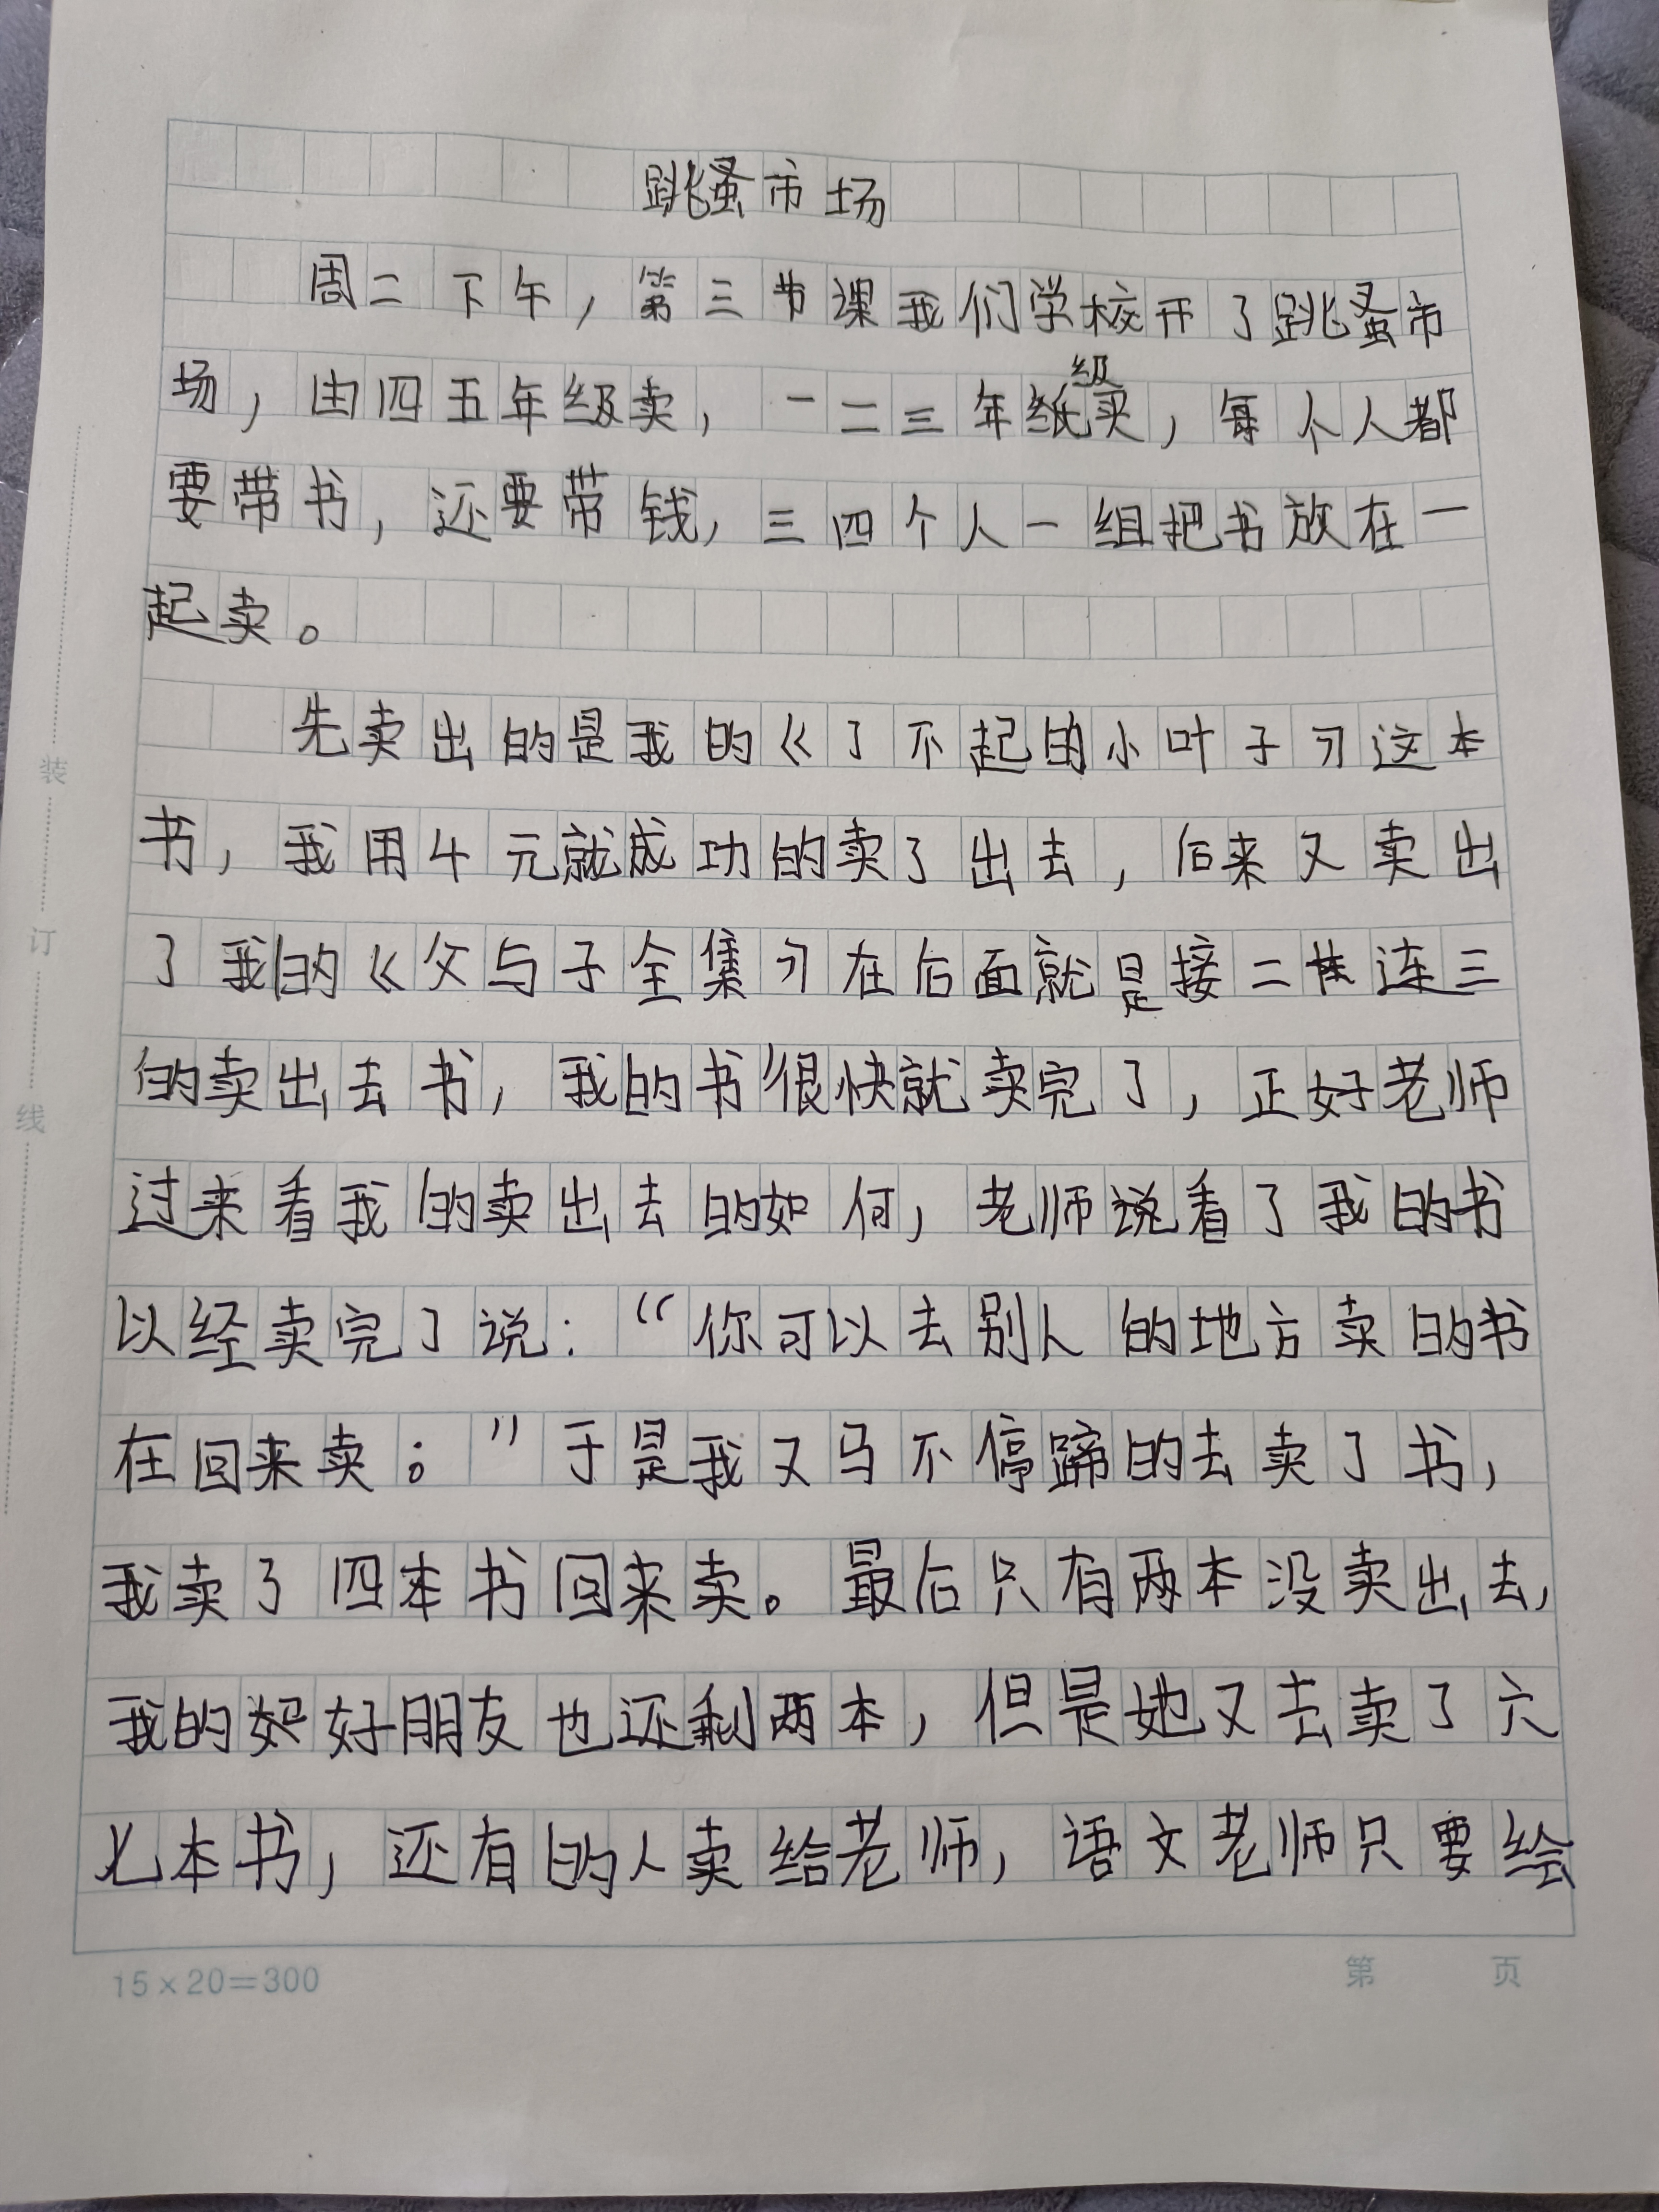 跳蚤市场
周二下午，第三节课我们学校开了跳蚤市
级
场，由四五年级卖，一二三年纸买，每个人都
要带书，还要带钱，三四个人一组把书放在一
起卖。
先卖出的是我的《了不起的小叶子》这本
书，我用4元就成功的卖了出去，后来又卖出
了我的《父与子全集》在后面就是接二连三
的卖出去书，我的书很快就卖完了，正好老师
过来看我的卖出去的如何，老师说看了我的书
以经卖完了说：“你可以去别人的地方卖的书
在回来卖；”于是我又马不停蹄的去卖了书，
我卖了四本书回来卖。最后只有两本没卖出去，
我的好朋友也还剩两本，但是她又去卖了六
七本书，还有的人卖给老师，语文老师只要绘
装
订
线
15×20=300
第 页